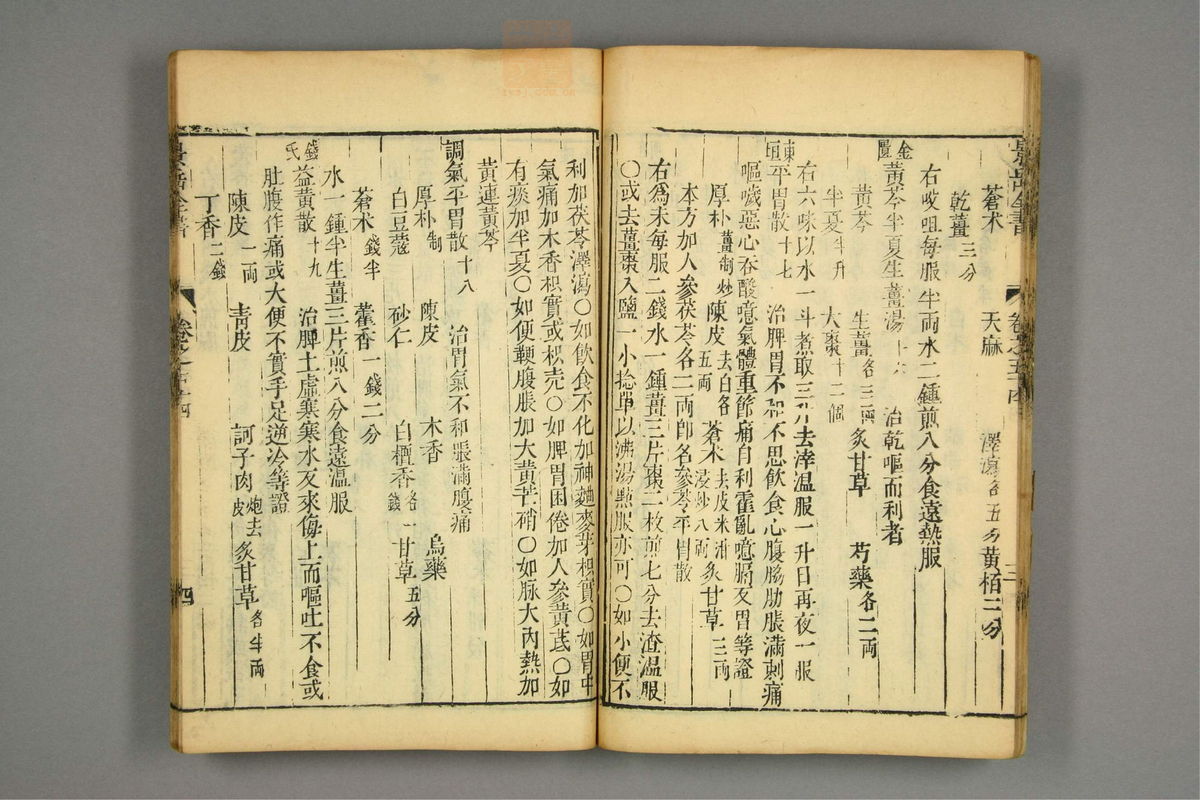 景岳全書 卷之五十四 三
蒼术 天麻 澤瀉各五分 黃栢二分
乾薑三分
右㕮咀每服半兩水二鍾煎八分食遠熱服
金匱黃芩半夏生薑湯十六 治乾嘔而利者
黃芩 生薑各三兩 炙甘草 芍藥各二兩
半夏半升 大棗十二個
右六味以水一斗煮取三升去滓温服一升日再夜一服
東垣平胃散十七 治脾胃不和不思飲食心腹脇肋脹滿刺痛
嘔噦惡心吞酸噫氣體重節痛自利霍亂噫膈反胃等證
厚朴薑制炒 陳皮去白各五兩 蒼术去皮米泔浸炒八兩 炙甘草三兩
本方加人參茯苓各二兩即名參苓平胃散
右為末每服二錢水一鍾薑三片棗二枚煎七分去渣温服
○或去薑棗入鹽一小捻單以沸湯㸃服亦可○如小便不
利加茯苓澤瀉○如飲食不化加神麯麥芽枳實○如胃中
氣痛加木香枳實或枳壳○如脾胃困倦加人參黃芪○如
有痰加半夏○如便鞕腹脹加大黃芒硝○如脉大內熱加
黃連黃芩
調氣平胃散十八 治胃氣不和脹滿腹痛
厚朴制 陳皮 木香 烏藥
白豆蔻 砂仁 白檀香各一錢 甘草五分
蒼术錢半 藿香一錢二分
水一鍾半生薑三片煎八分食遠温服
錢氏益黃散十九 治脾土虛寒寒水反來侮土而嘔吐不食或
肚腹作痛或大便不實手足逆冷等證
陳皮一兩 青皮 訶子肉炮去皮 炙甘草各半兩
丁香二錢
景岳全書 卷之五十四 四